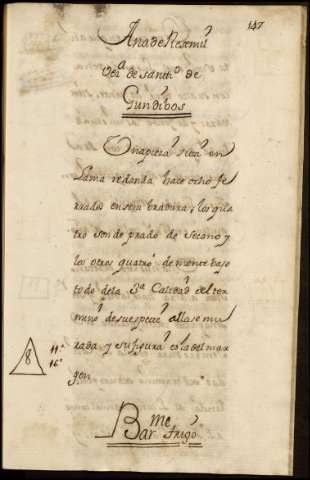 147
Ana de Resemil
vez.ª de sanctº de
Gundibos
Una pieza sita en
Lama redonda hace ocho fe
rrados en sembradura, los qua
tro son de prado de secano y
los otros quatro de monte bajo
todo de la 3ª Calidad el ter
mino de su especie allase mu
rada y su figura es la del mar
gen
8
11ª
16ª
Bme
Bar Trigo